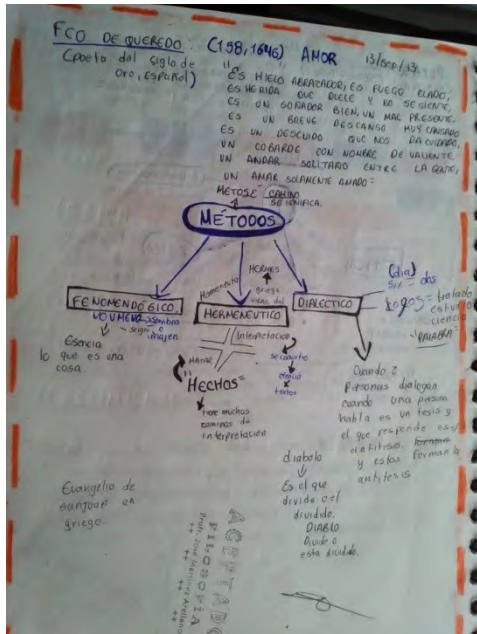 FCO DE QUEREDO. (158,1646) AMOR 13/sep/13
(poeta del siglo de
Oro, Español)
"ES HIELO ABRAZADOR, ES FUEGO ELADO,
ES HERIDA QUE DUELE Y NO SE SIENTE,
ES UN SOÑADOR BIEN, UN MAL PRESENTE.
ES UN BREVE DESCANSO MUY CANSADO
ES UN DESCUIDO QUE NOS DA CUIDADO,
UN COBARDE CON NOMBRE DE VALIENTE.
UN ANDAR SOLITARIO ENTRE LA GENTE,
UN AMAR SOLAMENTE AMADO"
METOSE CAMINO
SIGNIFICA.
MÉTODOS
FENOMENOLÓGICO
sombra
imagen
Esencia
lo que es una
cosa.
HERMES
griego
viene del
HERMENEUTICO
Interpretación
MATAR
"HECHOS"
tiene muchos
caminos de
interpretación
textos
DIALECTICO
(dia)
dos
Logos = tratado
estudio
ciencia
"PALABRA"
Cuando 2
Personas dialogan
cuando una persona
habla es un tesis y
el que responde es
antitesis.
y estas forman la
antitesis
diabolo
Es el que
divide o el
dividido.
DIABLO
Divide o
esta dividido.
Evangelio de
san juan en
griego.
ACEPTADO
FILOSOFIA
Profr. José Martínez Arellano